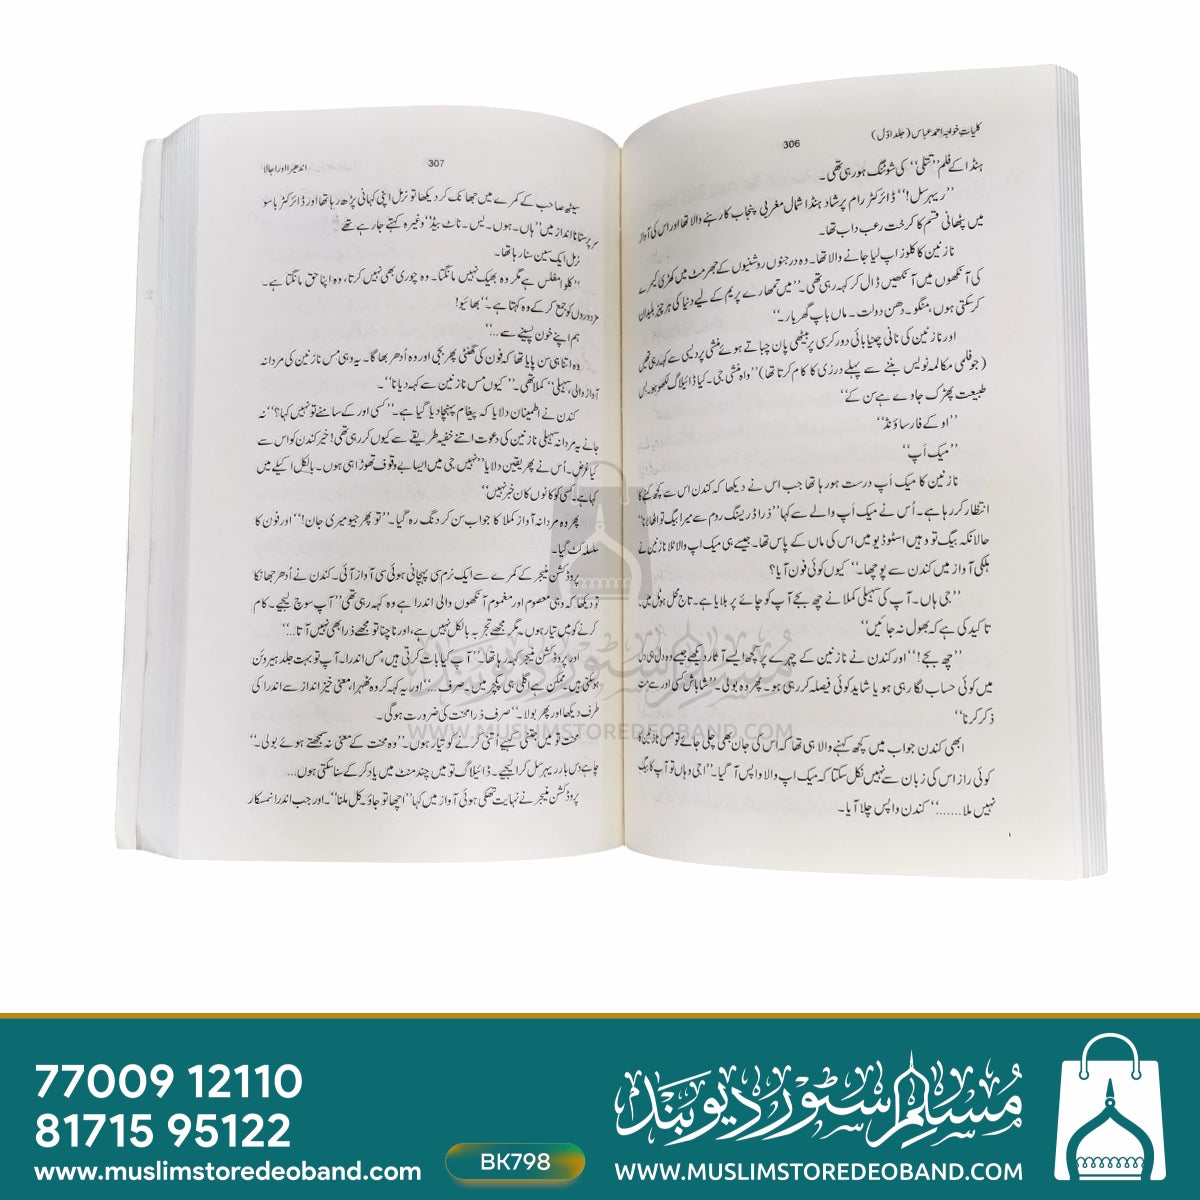 کلیات خواجہ احمد عباس (جلد اوّل)
306
ہنڈا کے فلم ”تتلی“ کی شوٹنگ ہو رہی تھی۔
”ریہرسل!“ ڈائرکٹر رام پرشاد ہنڈا شمال مغربی پنجاب کا رہنے والا تھا اور اس کی آواز
میں پٹھانی قسم کا کرخت رعب داب تھا۔
نازنین کا کلوز اپ لیا جانے والا تھا۔ وہ درجنوں روشنیوں کے جھرمٹ میں کھڑی کیمرے
کی آنکھوں میں آنکھیں ڈال کر کہہ رہی تھی۔ ”میں تمھارے پریم کے لیے دنیا کی ہر چیز بلیدان
کر سکتی ہوں، منگو۔ دھن دولت۔ ماں باپ گھر بار۔“
اور نازنین کی نانی چنیا بائی دور کرسی پر بیٹھی پان چباتے ہوئے منشی پردیسی سے کہہ رہی تھیں
(جو فلمی مکالمہ نویس بننے سے پہلے درزی کا کام کرتا تھا) ”واہ منشی جی۔ کیا ڈائیلاگ لکھو ہو۔ بس
طبیعت پھڑک جاوے ہے سن کے“
”او کے فار ساؤنڈ“
”میک اَپ“
نازنین کا میک اَپ درست ہو رہا تھا جب اس نے دیکھا کہ کندن اس سے کچھ کہنے کا
انتظار کر رہا ہے۔ اُس نے میک اَپ والے سے کہا ”ذرا ڈریسنگ روم سے میرا بیگ تو اٹھا لانا“
حالانکہ بیگ تو وہیں اسٹوڈیو میں اس کی ماں کے پاس تھا۔ جیسے ہی میک اپ والا ٹلا نازنین نے
ہلکی آواز میں کندن سے پوچھا۔ ”کیوں کوئی فون آیا؟
”جی ہاں۔ آپ کی سہیلی کملا نے چھ بجے آپ کو چائے پر بلایا ہے۔ تاج محل ہوٹل میں۔
تاکید کی ہے کہ بھول نہ جائیں“
”چھ بجے!“ اور کندن نے نازنین کے چہرے پر کچھ ایسے آثار دیکھے جیسے وہ دل ہی دل
میں کوئی حساب لگا رہی ہو یا شاید کوئی فیصلہ کر رہی ہو۔ پھر وہ بولی۔ ”شاباش کسی اور سے مت
ذکر کرنا“
ابھی کندن جواب میں کچھ کہنے والا ہی تھا کہ اس کی جان بھی چلی جائے تو مس نازنین کا
کوئی راز اس کی زبان سے نہیں نکل سکتا کہ میک اپ والا واپس آ گیا۔ ”اجی وہاں تو آپ کا بیگ
نہیں ملا.......“ کندن واپس چلا آیا۔
اندھیرا اور اجالا
307
سیٹھ صاحب کے کمرے میں جھانک کر دیکھا تو نرمل اپنی کہانی پڑھ رہا تھا اور ڈائرکٹر باسو
سرپرستانا انداز میں ”ہاں۔ ہوں۔ یس۔ ناٹ بیڈ“ وغیرہ کہتے جا رہے تھے
نرمل ایک سین سنا رہا تھا۔
”کلو مفلس ہے مگر وہ بھیک نہیں مانگتا۔ وہ چوری بھی نہیں کرتا، وہ اپنا حق مانگتا ہے۔
مزدوروں کو جمع کر کے وہ کہتا ہے۔ ”بھائیو!
ہم اپنے خون پسینے سے...“
وہ اتنا ہی سن پایا تھا کہ فون کی گھنٹی پھر بجی اور وہ اُدھر بھاگا۔ یہ وہی مس نازنین کی مردانہ
آواز والی سہیلی ”کملا“ تھی۔ ”کیوں مس نازنین سے کہہ دیا نا“۔
کندن نے اطمینان دلایا کہ پیغام پہنچا دیا گیا ہے۔ ”کسی اور کے سامنے تو نہیں کہا؟“ نہ
جانے یہ مردانہ سہیلی نازنین کی دعوت اتنے خفیہ طریقے سے کیوں کر رہی تھی! خیر کندن کو اس سے
کیا غرض۔ اُس نے پھر یقین دلایا ”نہیں جی میں ایسا بے وقوف تھوڑا ہی ہوں۔ بالکل اکیلے میں
کہا ہے۔ کسی کو کانوں کان خبر نہیں“
پھر وہ مردانہ آواز کملا کا جواب سن کر دنگ رہ گیا۔ ”تو پھر جیو میری جان!“ اور فون کا
سلسلہ کٹ گیا۔
پروڈکشن منیجر کے کمرے سے ایک نرم سی پہچانی ہوئی سی آواز آئی۔ کندن نے اُدھر جھانکا
تو دیکھا کہ وہی معصوم اور مغموم آنکھوں والی اندرا ہے وہ کہہ رہی تھی ”آپ سوچ لیجیے۔ کام
کرنے کو میں تیار ہوں۔ مگر مجھے تجربہ بالکل نہیں ہے، اور ناچنا تو مجھے ذرا بھی نہیں آتا...“
اور پروڈکشن منیجر کہہ رہا تھا۔ ”آپ کیا بات کرتی ہیں، مس اندرا۔ آپ تو بہت جلد ہیروئن
ہو سکتی ہیں۔ ممکن ہے اگلی ہی پکچر میں۔ صرف...“ اور یہ کہہ کر وہ ٹھہرا، معنی خیز انداز سے اندرا کی
طرف دیکھا اور پھر بولا۔ ”صرف ذرا محنت کی ضرورت ہوگی۔
محنت تو میں جتنی کہیے اُتنی کرنے کو تیار ہوں۔“ وہ محنت کے معنی نہ سمجھتے ہوئے بولی۔“
چاہے دس بار ریہرسل کرا لیجیے۔ ڈائیلاگ تو میں چند منٹ میں یاد کر کے سنا سکتی ہوں...
پروڈکشن منیجر نے نہایت تھکی ہوئی آواز میں کہا ”اچھا تو جاؤ۔ کل ملنا“۔ اور جب اندرا نمسکار
مسلم سٹور دیوبند
WWW.MUSLIMSTOREDEOBAND.COM
77009 12110
81715 95122
www.muslimstoredeoband.com
BK798
مسلم سٹور دیوبند
WWW.MUSLIMSTOREDEOBAND.COM